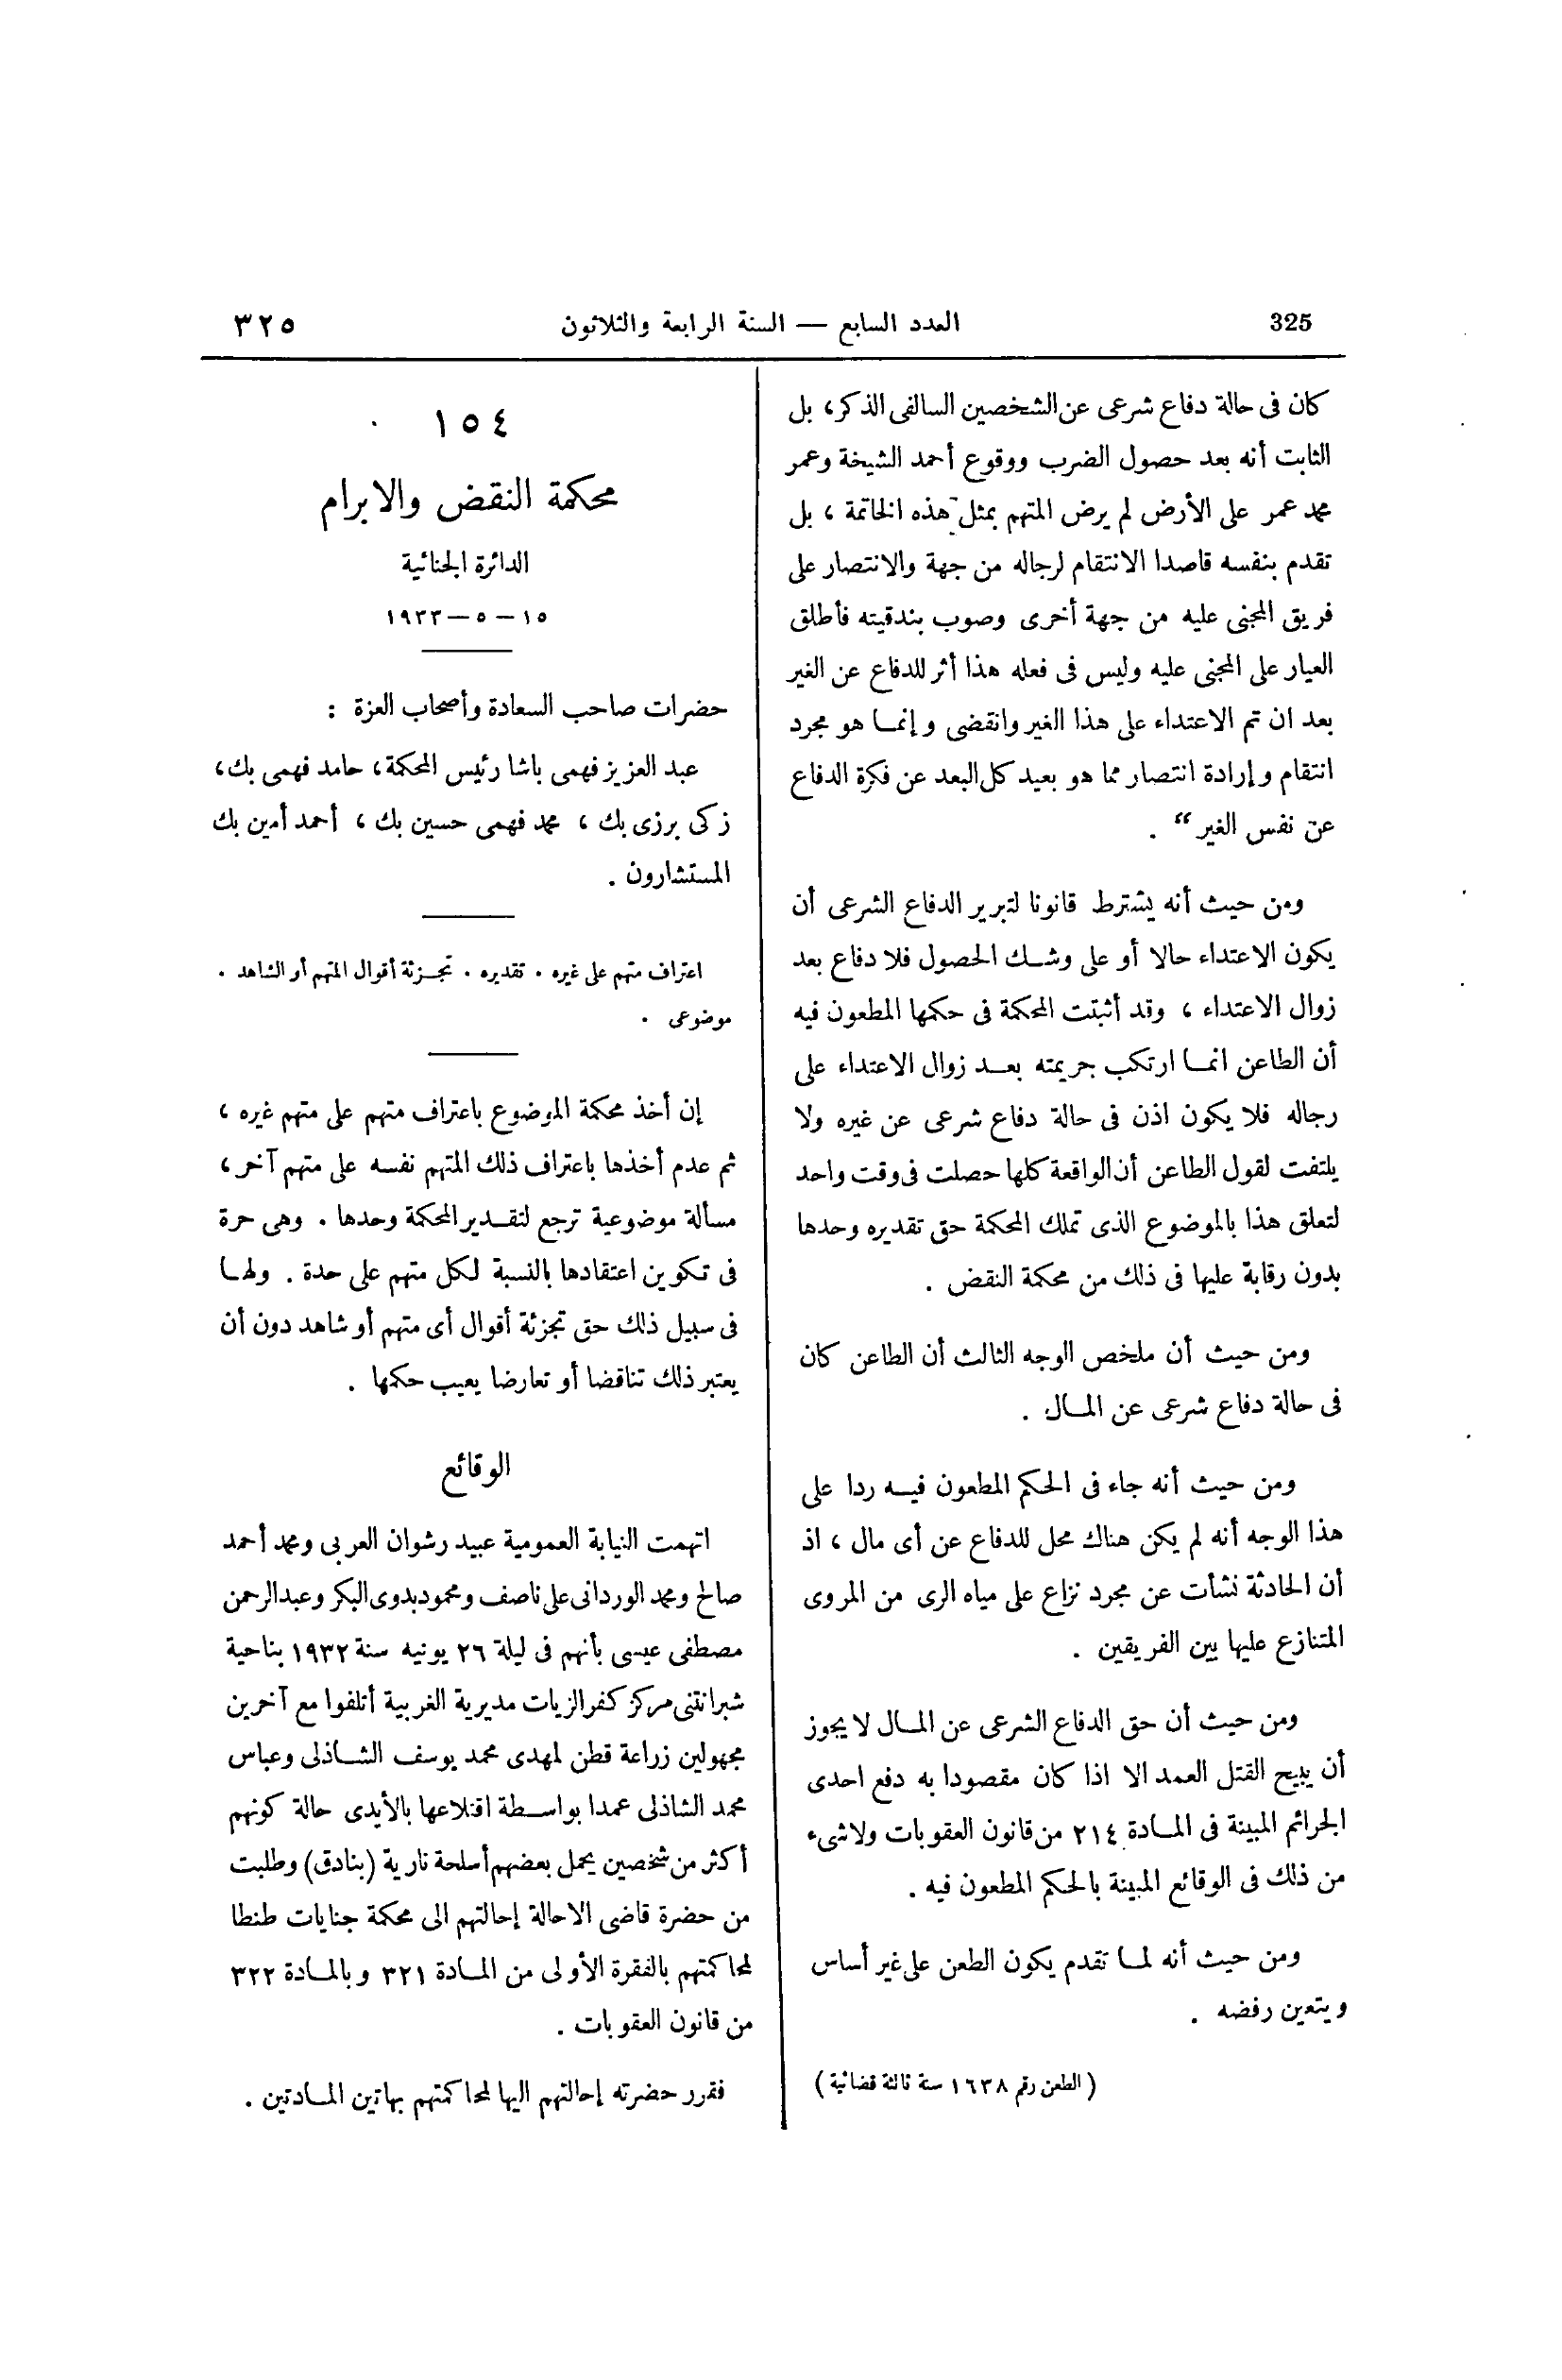 325
العدد السابع — السنة الرابعة والثلاثون
٣٢٥
كان فى حالة دفاع شرعى عن الشخصين السالفى الذكر، بل
الثابت أنه بعد حصول الضرب ووقوع أحمد الشيخة وعمر
محمد عمر على الأرض لم يرض المتهم بمثل هذه الخاتمة ، بل
تقدم بنفسه قاصدا الانتقام لرجاله من جهة والانتصار على
فريق المجنى عليه من جهة أخرى وصوب بندقيته فأطلق
العيار على المجنى عليه وليس فى فعله هذا أثر للدفاع عن الغير
بعد ان تم الاعتداء على هذا الغير وانقضى وإنمـا هو مجرد
انتقام وإرادة انتصار مما هو بعيد كل البعد عن فكرة الدفاع
عن نفس الغير “ .
ومن حيث أنه يشترط قانونا لتبرير الدفاع الشرعى أن
يكون الاعتداء حالا أو على وشـك الحصول فلا دفاع بعد
زوال الاعتداء ، وقد أثبتت المحكمة فى حكمها المطعون فيه
أن الطاعن انمـا ارتكب جريمته بعـد زوال الاعتداء على
رجاله فلا يكون اذن فى حالة دفاع شرعى عن غيره ولا
يلتفت لقول الطاعن أن الواقعة كلها حصلت فى وقت واحد
لتعلق هذا بالموضوع الذى تملك المحكمة حق تقديره وحدها
بدون رقابة عليها فى ذلك من محكمة النقض .
ومن حيث أن ملخص الوجه الثالث أن الطاعن كان
فى حالة دفاع شرعى عن المـال .
ومن حيث أنه جاء فى الحكم المطعون فيـه ردا على
هذا الوجه أنه لم يكن هناك محل للدفاع عن أى مال ، اذ
أن الحادثة نشأت عن مجرد نزاع على مياه الرى من المروى
المتنازع عليها بين الفريقين .
ومن حيث أن حق الدفاع الشرعى عن المـال لا يجوز
أن يبيح القتل العمد الا اذا كان مقصودا به دفع احدى
الجرائم المبينة فى المـادة ٢١٤ من قانون العقوبات ولاشىء
من ذلك فى الوقائع المبينة بالحكم المطعون فيه .
ومن حيث أنه لمـا تقدم يكون الطعن على غير أساس
ويتعين رفضه .
( الطعن رقم ١٦٣٨ سنة ثالثة قضائية )
١٥٤
محكمة النقض والابرام
الدائرة الجنائية
١٥ – ٥ – ١٩٣٣
حضرات صاحب السعادة وأصحاب العزة :
عبد العزيز فهمى باشا رئيس المحكمة، حامد فهمى بك،
زكى برزى بك ، محمد فهمى حسين بك ، أحمد أمين بك
المستشارون .
اعتراف متهم على غيره . تقديره . تجـزئة أقوال المتهم أو الشاهد .
موضوعى .
إن أخذ محكمة الموضوع باعتراف متهم على متهم غيره ،
ثم عدم أخذها باعتراف ذلك المتهم نفسه على متهم آخر ،
مسألة موضوعية ترجع لتقـدير المحكمة وحدها . وهى حرة
فى تكوين اعتقادها بالنسبة لكل متهم على حدة . ولهـا
فى سبيل ذلك حق تجزئة أقوال أى متهم أو شاهد دون أن
يعتبر ذلك تناقضا أو تعارضا يعيب حكمها .
الوقائع
اتهمت النيابة العمومية عبيد رشوان العربى ومحمد أحمد
صالح ومحمد الوردانى على ناصف ومحمود بدوى البكر وعبد الرحمن
مصطفى عيسى بأنهم فى ليلة ٢٦ يونيه سنة ١٩٣٢ بناحية
شبرانتنى مركز كفر الزيات مديرية الغربية أتلفوا مع آخرين
مجهولين زراعة قطن لمهدى محمد يوسف الشـاذلى وعباس
محمد الشاذلى عمدا بواسـطة اقتلاعها بالأيدى حالة كونهم
أكثر من شخصين يحمل بعضهم أسلحة نارية (بنادق) وطلبت
من حضرة قاضى الاحالة إحالتهم الى محكمة جنايات طنطا
لمحاكمتهم بالفقرة الأولى من المـادة ٣٢١ وبالمـادة ٣٢٢
من قانون العقوبات .
فقرر حضرته إحالتهم اليها لمحاكمتهم بهاتين المـادتين .